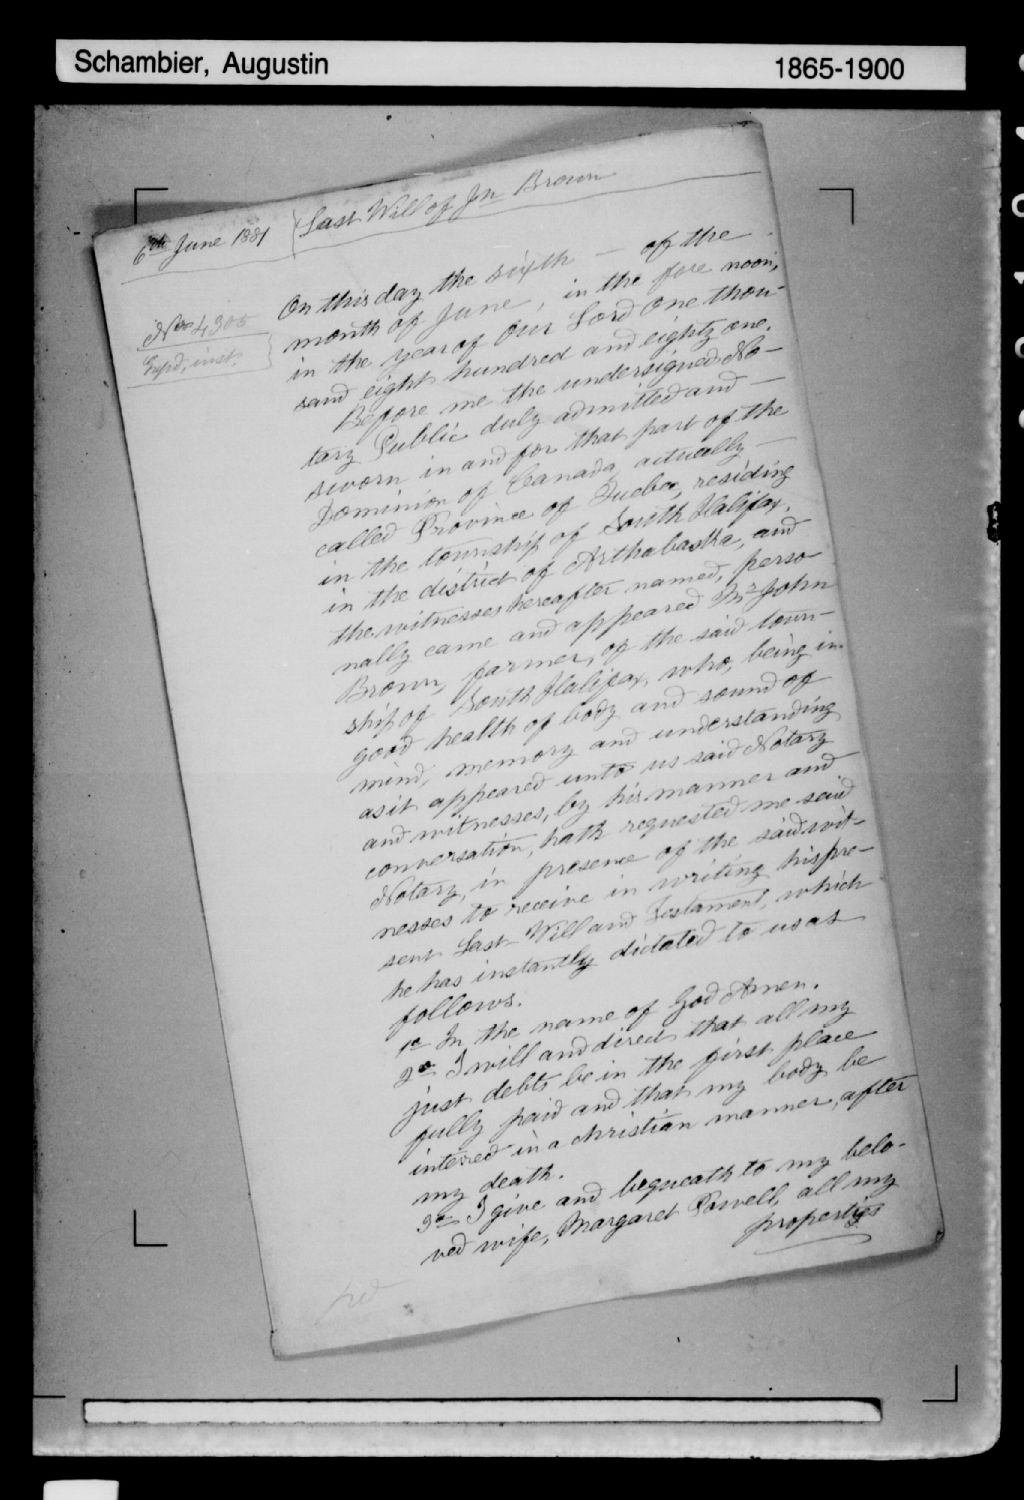 Schambier, Augustin
1865-1900
6th June 1881
Last Will of Jn Brown
No 4305
Exp'd, inst.
On this day the sixth — of the
month of June, in the fore noon,
in the year of Our Lord One thou-
sand eight hundred and eighty one.
Before me the undersigned No-
tary Public duly admitted and —
sworn in and for that part of the
Dominion of Canada, actually —
called Province of Quebec, residing
in the township of South Halifax,
in the district of Arthabaska, and
the witnesses hereafter named, perso-
nally came and appeared Mr John
Brown, farmer, of the said town-
ship of South Halifax, who, being in
good health of body and sound of
mind, memory and understanding
as it appeared unto us said Notary
and witnesses, by his manner and
conversation, hath requested me said
Notary, in presence of the said wit-
nesses to receive in writing his pre-
sent Last Will and Testament, which
he has instantly dictated to us as
follows.
1o In the name of God Amen.
2o I will and direct that all my
just debts be in the first place
fully paid and that my body be
intered in a christian manner, after
my death.
3o I give and bequeath to my belo-
ved wife, Margaret Powell, all my
properties